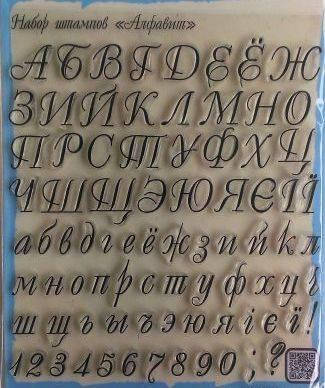 Набор штампов «Алфавит»
А Б В Г Д Е Ё Ж
З И Й К Л М Н О
П Р С Т У Ф Х Ц
Ч Ш Щ Э Ю Я Є Ї
а б в д г е ё ж з и й к л
м н о п р с т у ф х ц ч
ш щ ъ ы ъ э ю я і є ї !
1 2 3 4 5 6 7 8 9 0 ; ?